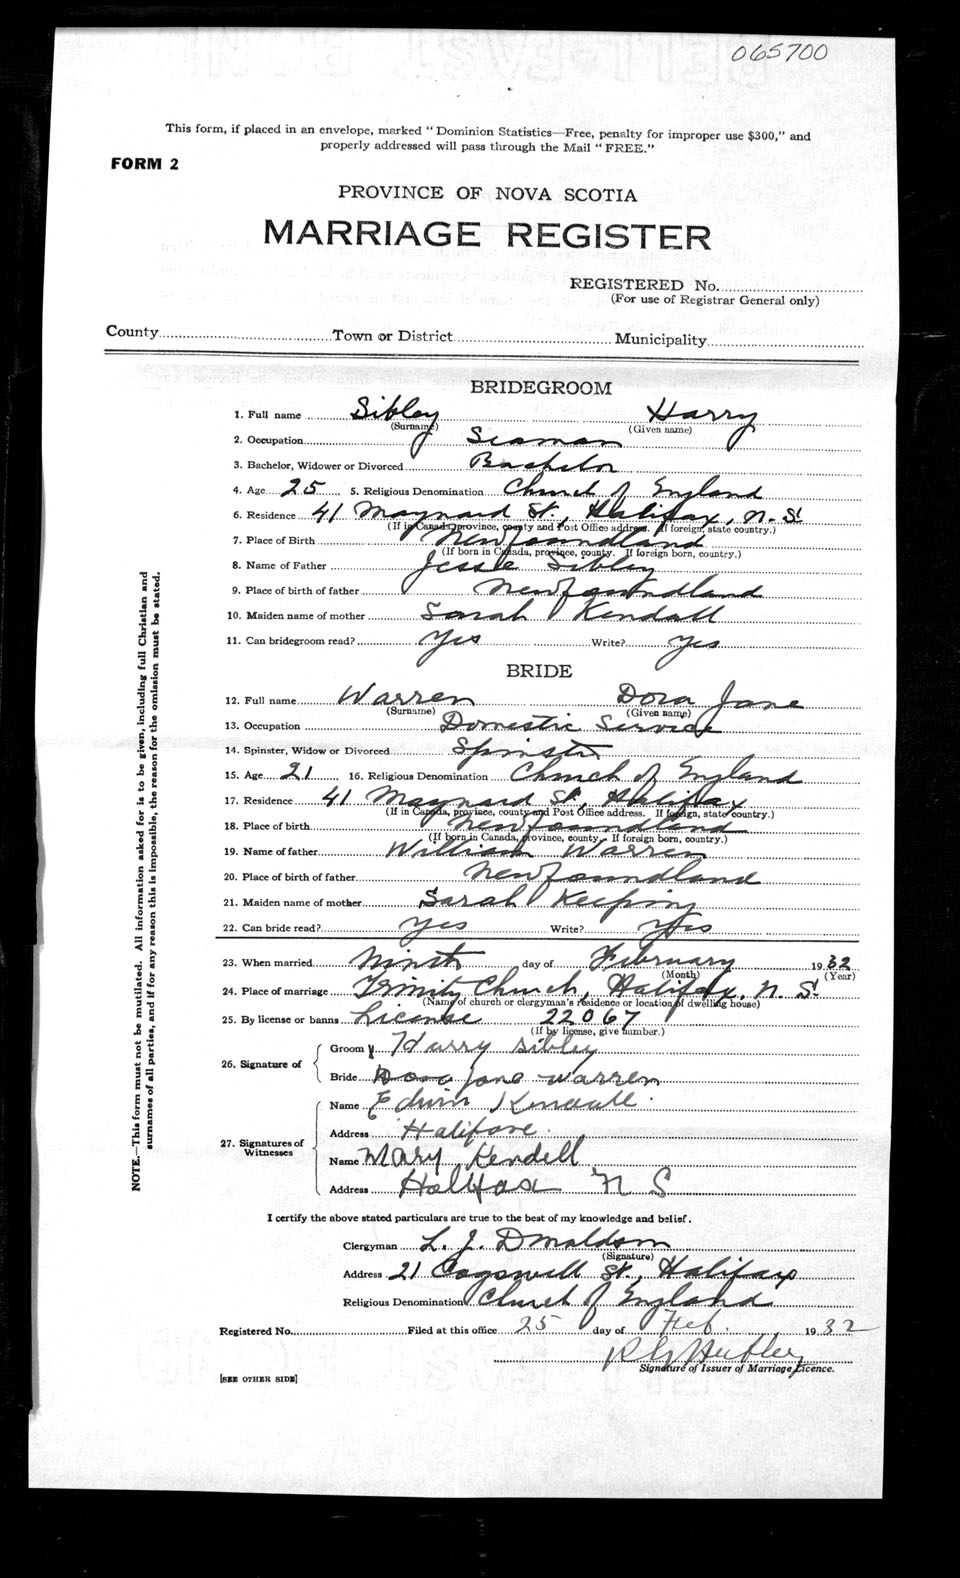 065700
This form, if placed in an envelope, marked "Dominion Statistics—Free, penalty for improper use $300," and
properly addressed will pass through the Mail "FREE."
FORM 2
PROVINCE OF NOVA SCOTIA
MARRIAGE REGISTER
REGISTERED No.
(For use of Registrar General only)
County Town or District Municipality
BRIDEGROOM
1. Full name Sibley Harry
(Surname) (Given name)
2. Occupation Seaman
3. Bachelor, Widower or Divorced Bachelor
4. Age 25 5. Religious Denomination Church of England
6. Residence 41 Maynard St., Halifax, N.S.
(If in Canada, province, county and Post Office address. If foreign, state country.)
7. Place of Birth Newfoundland
(If born in Canada, province, county. If foreign born, country.)
8. Name of Father Jessie Sibley
9. Place of birth of father Newfoundland
10. Maiden name of mother Sarah Kendall
11. Can bridegroom read? Yes Write? Yes
BRIDE
12. Full name Warren Dora Jane
(Surname) (Given name)
13. Occupation Domestic Service
14. Spinster, Widow or Divorced Spinster
15. Age 21 16. Religious Denomination Church of England
17. Residence 41 Maynard St., Halifax
(If in Canada, province, county and Post Office address. If foreign, state country.)
18. Place of birth Newfoundland
(If born in Canada, province, county. If foreign born, country.)
19. Name of father William Warren
20. Place of birth of father Newfoundland
21. Maiden name of mother Sarah Keeping
22. Can bride read? Yes Write? Yes
23. When married day of February 1932
(Month) (Year)
24. Place of marriage Trinity Church, Halifax, N.S.
(Name of church or clergyman's residence or location of dwelling house)
25. By license or banns License 22067
(If by license, give number.)
26. Signature of
Groom Harry Sibley
Bride Dora Jane Warren
27. Signatures of Witnesses
Name Edwin Kendall
Address Halifax
Name Mary Kendell
Address Halifax N S
I certify the above stated particulars are true to the best of my knowledge and belief.
Clergyman L. J. Donaldson
(Signature)
Address 21 Cogswell St., Halifax
Religious Denomination Church of England
Registered No. Filed at this office 25 day of Feb. 1932
Signature of Issuer of Marriage Licence.
[SEE OTHER SIDE]
NOTE.—This form must not be mutilated. All information asked for is to be given, including full Christian and
surnames of all parties, and if for any reason this is impossible, the reason for the omission must be stated.